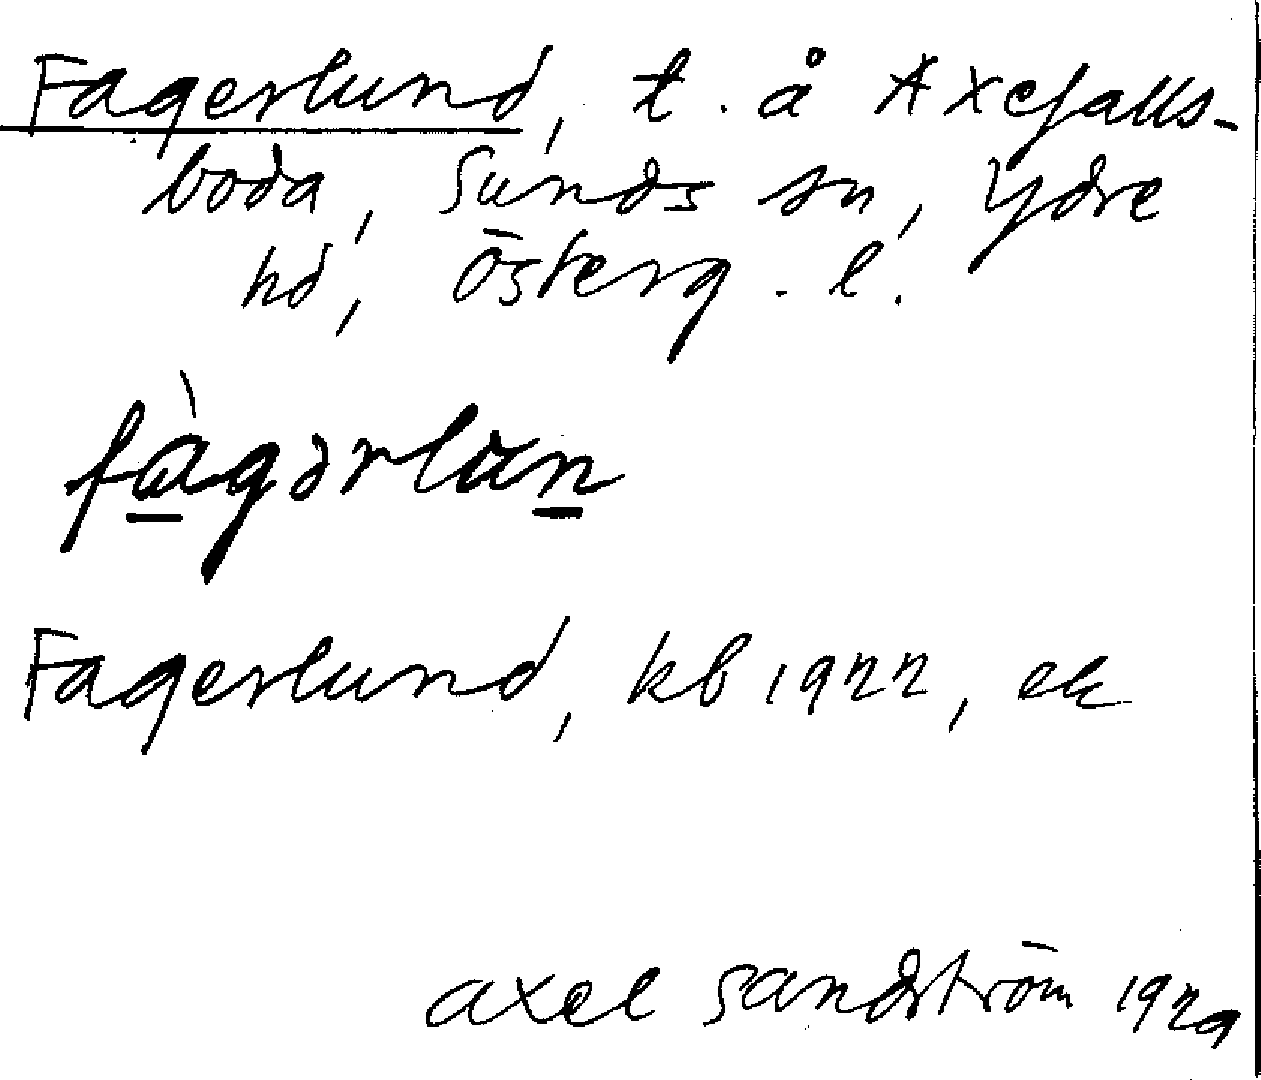 Fagerlund, t. å Axefalls-
boda, Sunds sn, Ydre
hd, Österg. l.
fàgərlun
Fagerlund, kb 1922, ek
axel sandström 1929